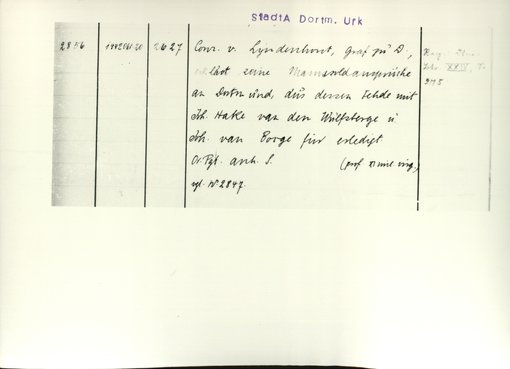 StadtA Dortm. Urk
2856 2627 Conr. v. Lyndenhorst, Graf zu D.,
erklärt seine Mannsoldansprüche
an Dortmund, aus dessen Fehde mit
Joh. Hake van den Wulfsberge u
Joh. van Borge für erledigt
Or. Pgt. anh. S.
vgl. N° 2847.
XXVI